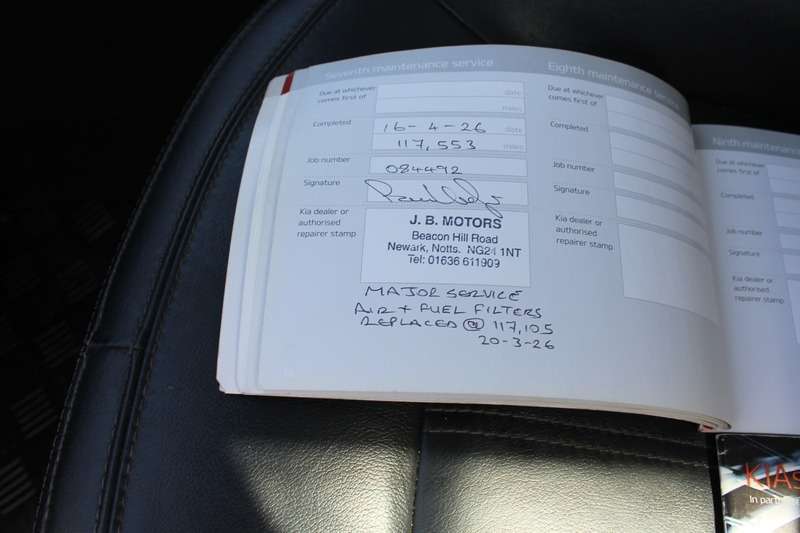 Seventh maintenance service
Due at whichever
comes first of
date
miles
Completed
16-4-26
date
117,553
miles
Job number
084492
Signature
Kia dealer or
authorised
repairer stamp
J. B. MOTORS
Beacon Hill Road
Newark, Notts. NG24 1NT
Tel: 01636 611909
MAJOR SERVICE
AIR + FUEL FILTERS
REPLACED @ 117,105
20-3-26
Eighth maintenance service
Due at whichever
comes first of
Completed
Job number
Signature
Kia dealer or
authorised
repairer stamp
Ninth maintenance
Due at whichever
comes first of
Completed
Job number
Signature
Kia dealer or
authorised
repairer stamp
KIA
In partn